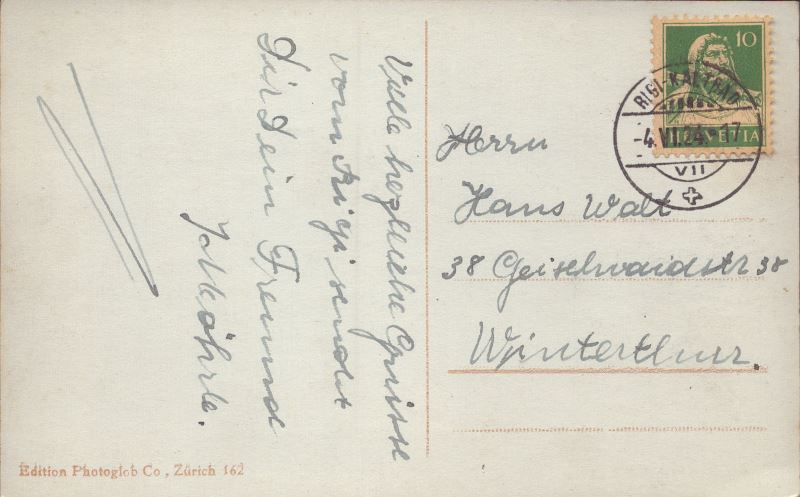 Viele herzliche Grüsse
vom Rigi sendet
Dir Dein Freund
J. Möhrle.
10
HELVETIA
RIGI-KALTBAD
-4.VII.24.-17
VII
Herrn
Hans Walt
38 Geiselwaidstr 38
Winterthur.
Edition Photoglob Co., Zürich 162